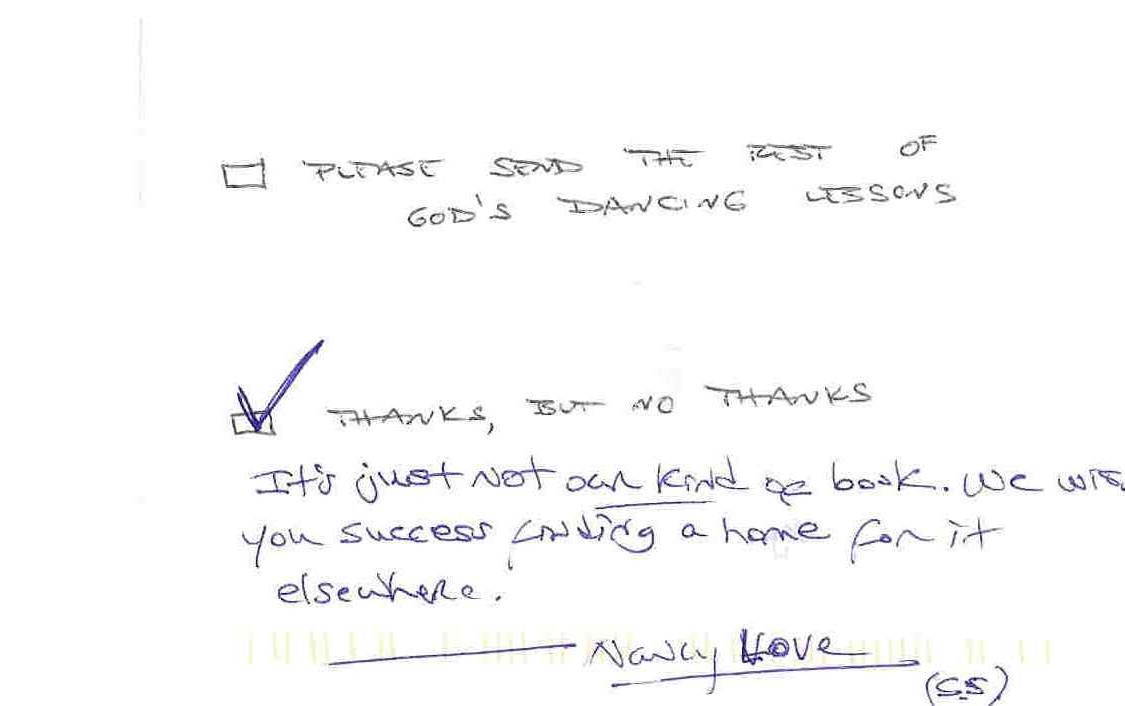 PLEASE SEND THE REST OF
GOD'S DANCING LESSONS
THANKS, BUT NO THANKS
It's just not our kind of book. We wis
you success finding a home for it
elsewhere.
Nancy Hove
(SS)